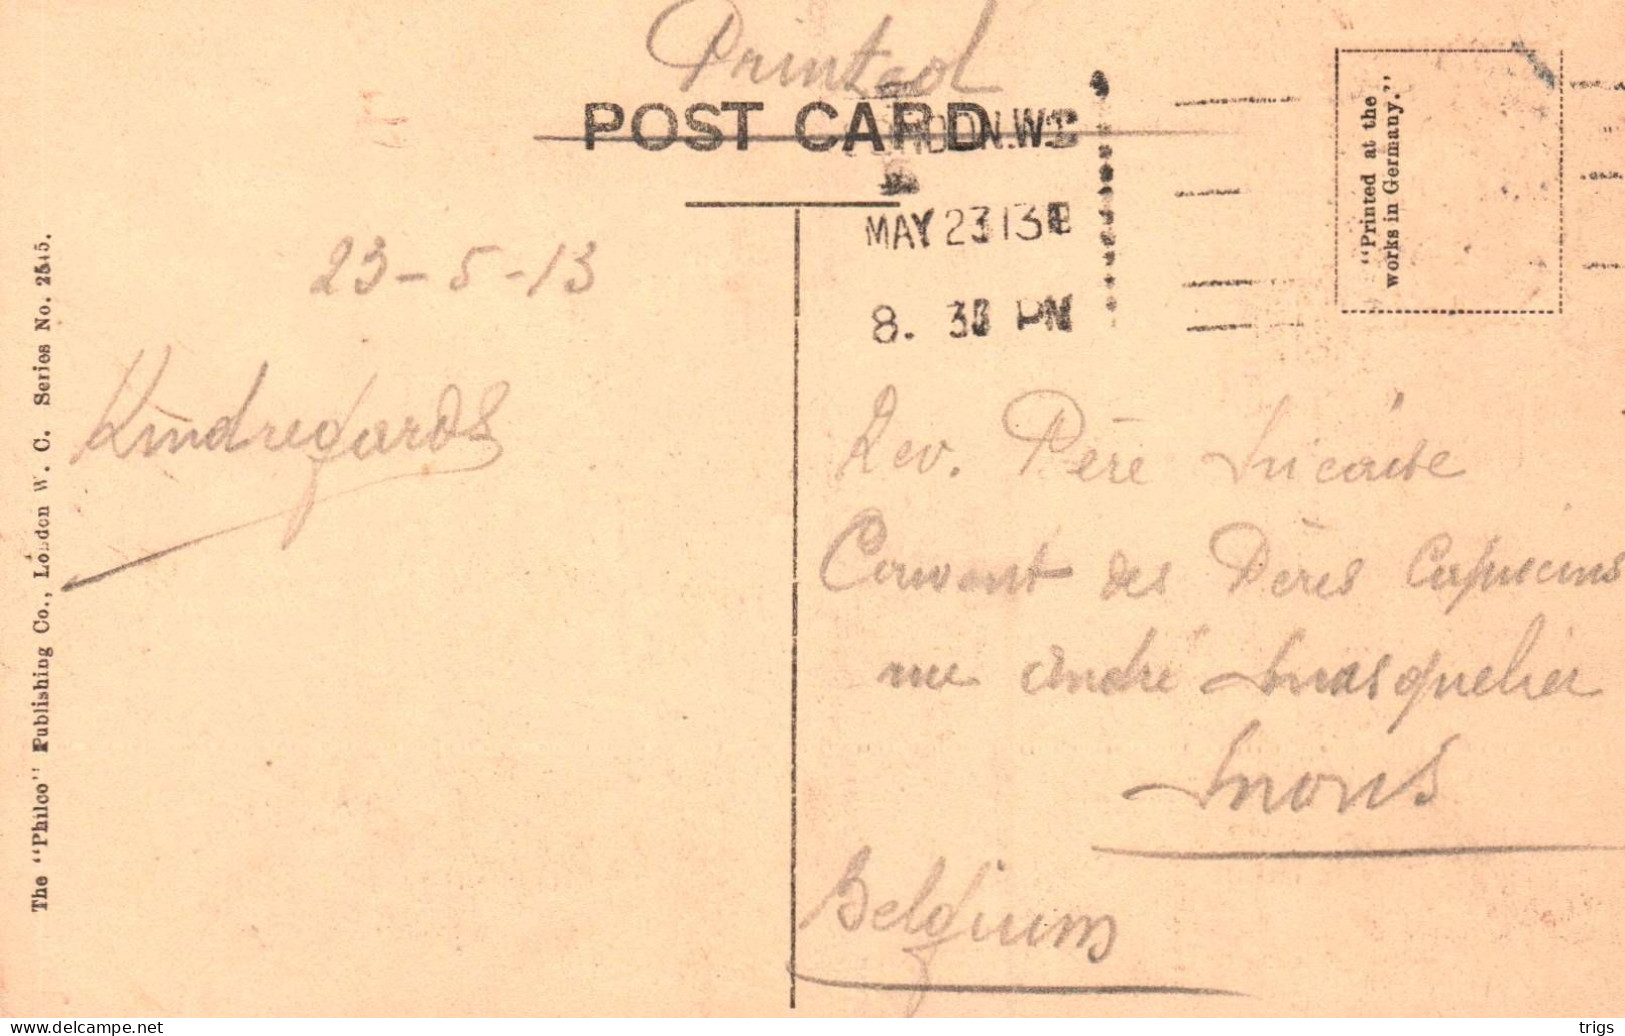 Printed
POST CARD
LONDON.W.
MAY 23 13
8. 30 PM
"Printed at the
works in Germany."
23-5-13
Kind regards
Rev. Père Nicaise
Couvent des Pères Capucins
rue André Masquelier
Mons
Belgium
The "Philco" Publishing Co., London W. C. Series No. 2545.
delcampe.net
trigs